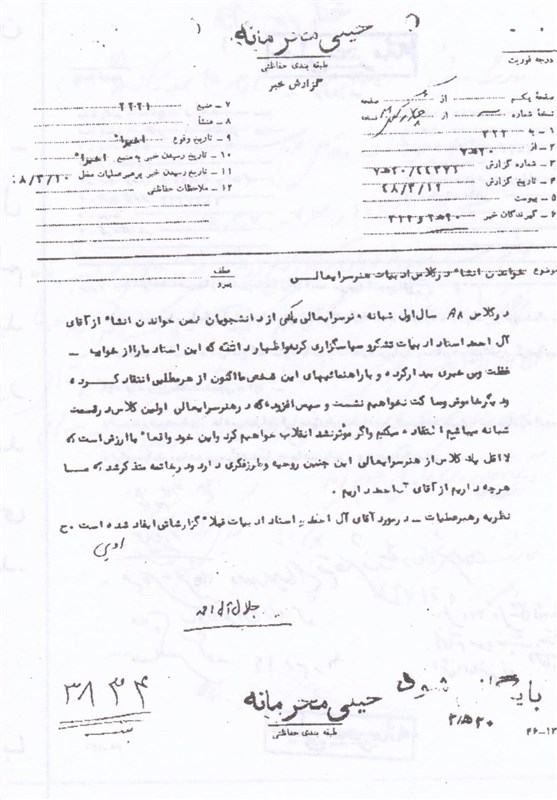 خیلی محرمانه
طبقه بندی حفاظتی
گزارش خبر
درجه فوریت
صفحه یکم از صفحه
نسخه شماره از نسخه
۱ – به ۳۲۲
۲ – از ۲۰ﻫ۷
۳ – شماره گزارش
۴ – تاریخ گزارش
۵ – پیوست
۶ – گیرندگان خبر
۷ – منبع ۲۲۲۱
۸ – منشأ
۹ – تاریخ وقوع اخیرا"
۱۰ – تاریخ رسیدن خبر به منبع اخیرا"
۱۱ – تاریخ رسیدن خبر برهبر عملیات محل
۱۲ – ملاحظات حفاظتی
موضوع خواندن انشاء در کلاس ادبیات هنرسرایعالی
عطف
پیرو
در کلاس A۸ سال اول شبانه هنرسرایعالی یکی از دانشجویان ضمن خواندن انشاء از آقای
آل احمد استاد ادبیات تشکر و سپاسگزاری کرده و اظهار داشت که این استاد ما را از خواب
غفلت و بی خبری بیدار کرده و با راهنمائیهای این شخص ما اکنون از هر مطلبی انتقاد کرده
و دیگر خاموش و ساکت نخواهیم نشست و سپس افزود که در هنرسرایعالی اولین کلاس در قسمت
شبانه میباشیم انتقاد میکنیم و اگر موثر نشد انقلاب خواهیم کرد و این خود واقعا" با ارزش است که
لااقل یک کلاس از هنرسرایعالی این چنین روحیه و طرز فکری دارد و در خاتمه متذکر شد که ما
هرچه داریم از آقای آل احمد داریم .
نظریه رهبر عملیات – در مورد آقای آل احمد استاد ادبیات قبلا" گزارشاتی ایفاد شده است . ح
جلال آل احمد
۳۸۳۴
شود
خیلی محرمانه
طبقه بندی حفاظتی
۲۰ﻫ۲
۴۶-۱۳